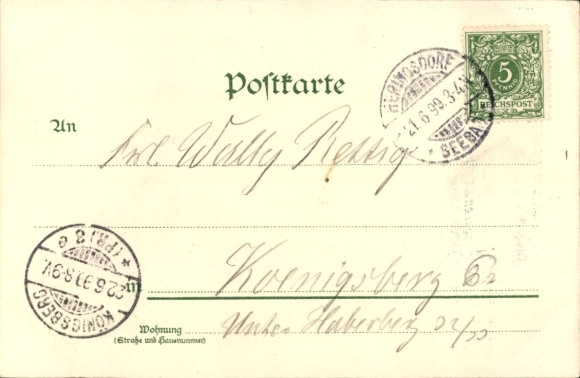 HERINGSDORF
21.6.99.3-4N
SEEBA
5
REICHSPOST
Postkarte
An
Frl. Wally Rettig
KÖNIGSBERG
22.6.99.8-9V.
* (PR.) 3 e
in
Koenigsberg Pr
Wohnung
(Straße und Hausnummer)
Unter Haberberg 32/33